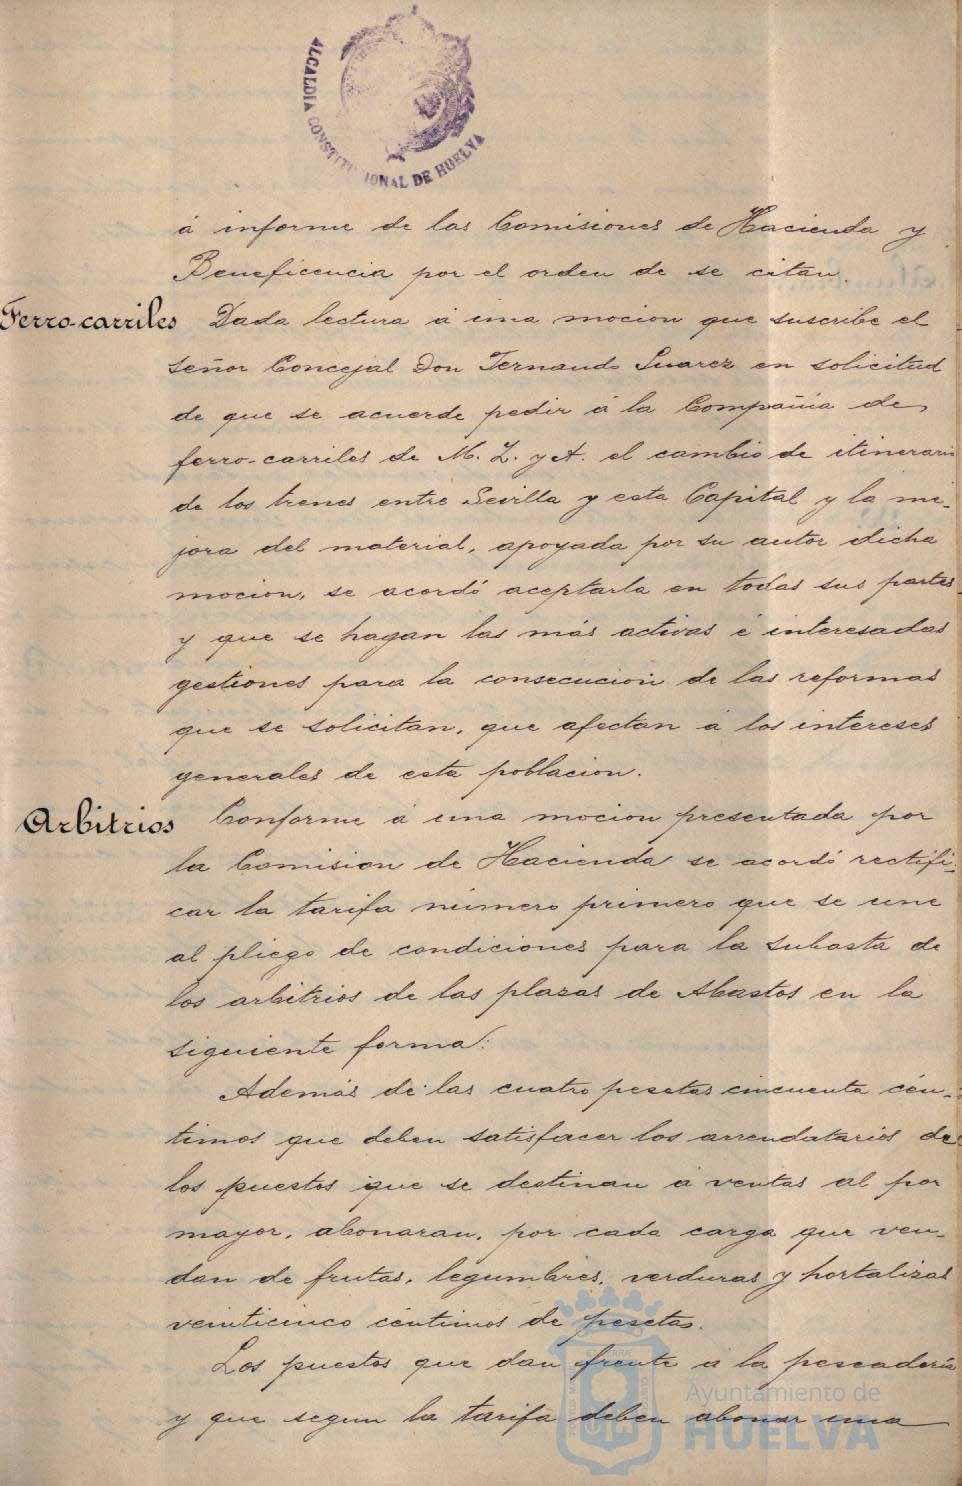 ALCALDIA CONSTITUCIONAL DE HUELVA
á informe de las Comisiones de Hacienda y
Beneficencia por el orden de se citan.
Ferro-carriles
Dada lectura á una mocion que suscribe el
señor Concejal Don Fernando Suarez en solicitud
de que se acuerde pedir á la Compañia de
ferro-carriles de M. Z. y A. el cambio de itinerario
de los trenes entre Sevilla y esta Capital y la me-
jora del material, apoyada por su autor dicha
mocion, se acordó aceptarla en todas sus partes
y que se hagan las más activas é interesadas
gestiones para la consecucion de las reformas
que se solicitan, que afectan á los intereses
generales de esta poblacion.
Arbitrios
Conforme á una mocion presentada por
la Comision de Hacienda se acordó rectifi-
car la tarifa número primero que se une
al pliego de condiciones para la subasta de
los arbitrios de las plazas de Abastos en la
siguiente forma:
Además de las cuatro pesetas cincuenta cén-
timos que deben satisfacer los arrendatarios de
los puestos que se destinan á ventas al por
mayor, abonaran, por cada carga que ven-
dan de frutas, legumbres, verduras y hortalizas
veinticinco céntimos de pesetas.
Los puestos que dan frente á la pescaderia
y que segun la tarifa deben abonar una
Ayuntamiento de
HUELVA